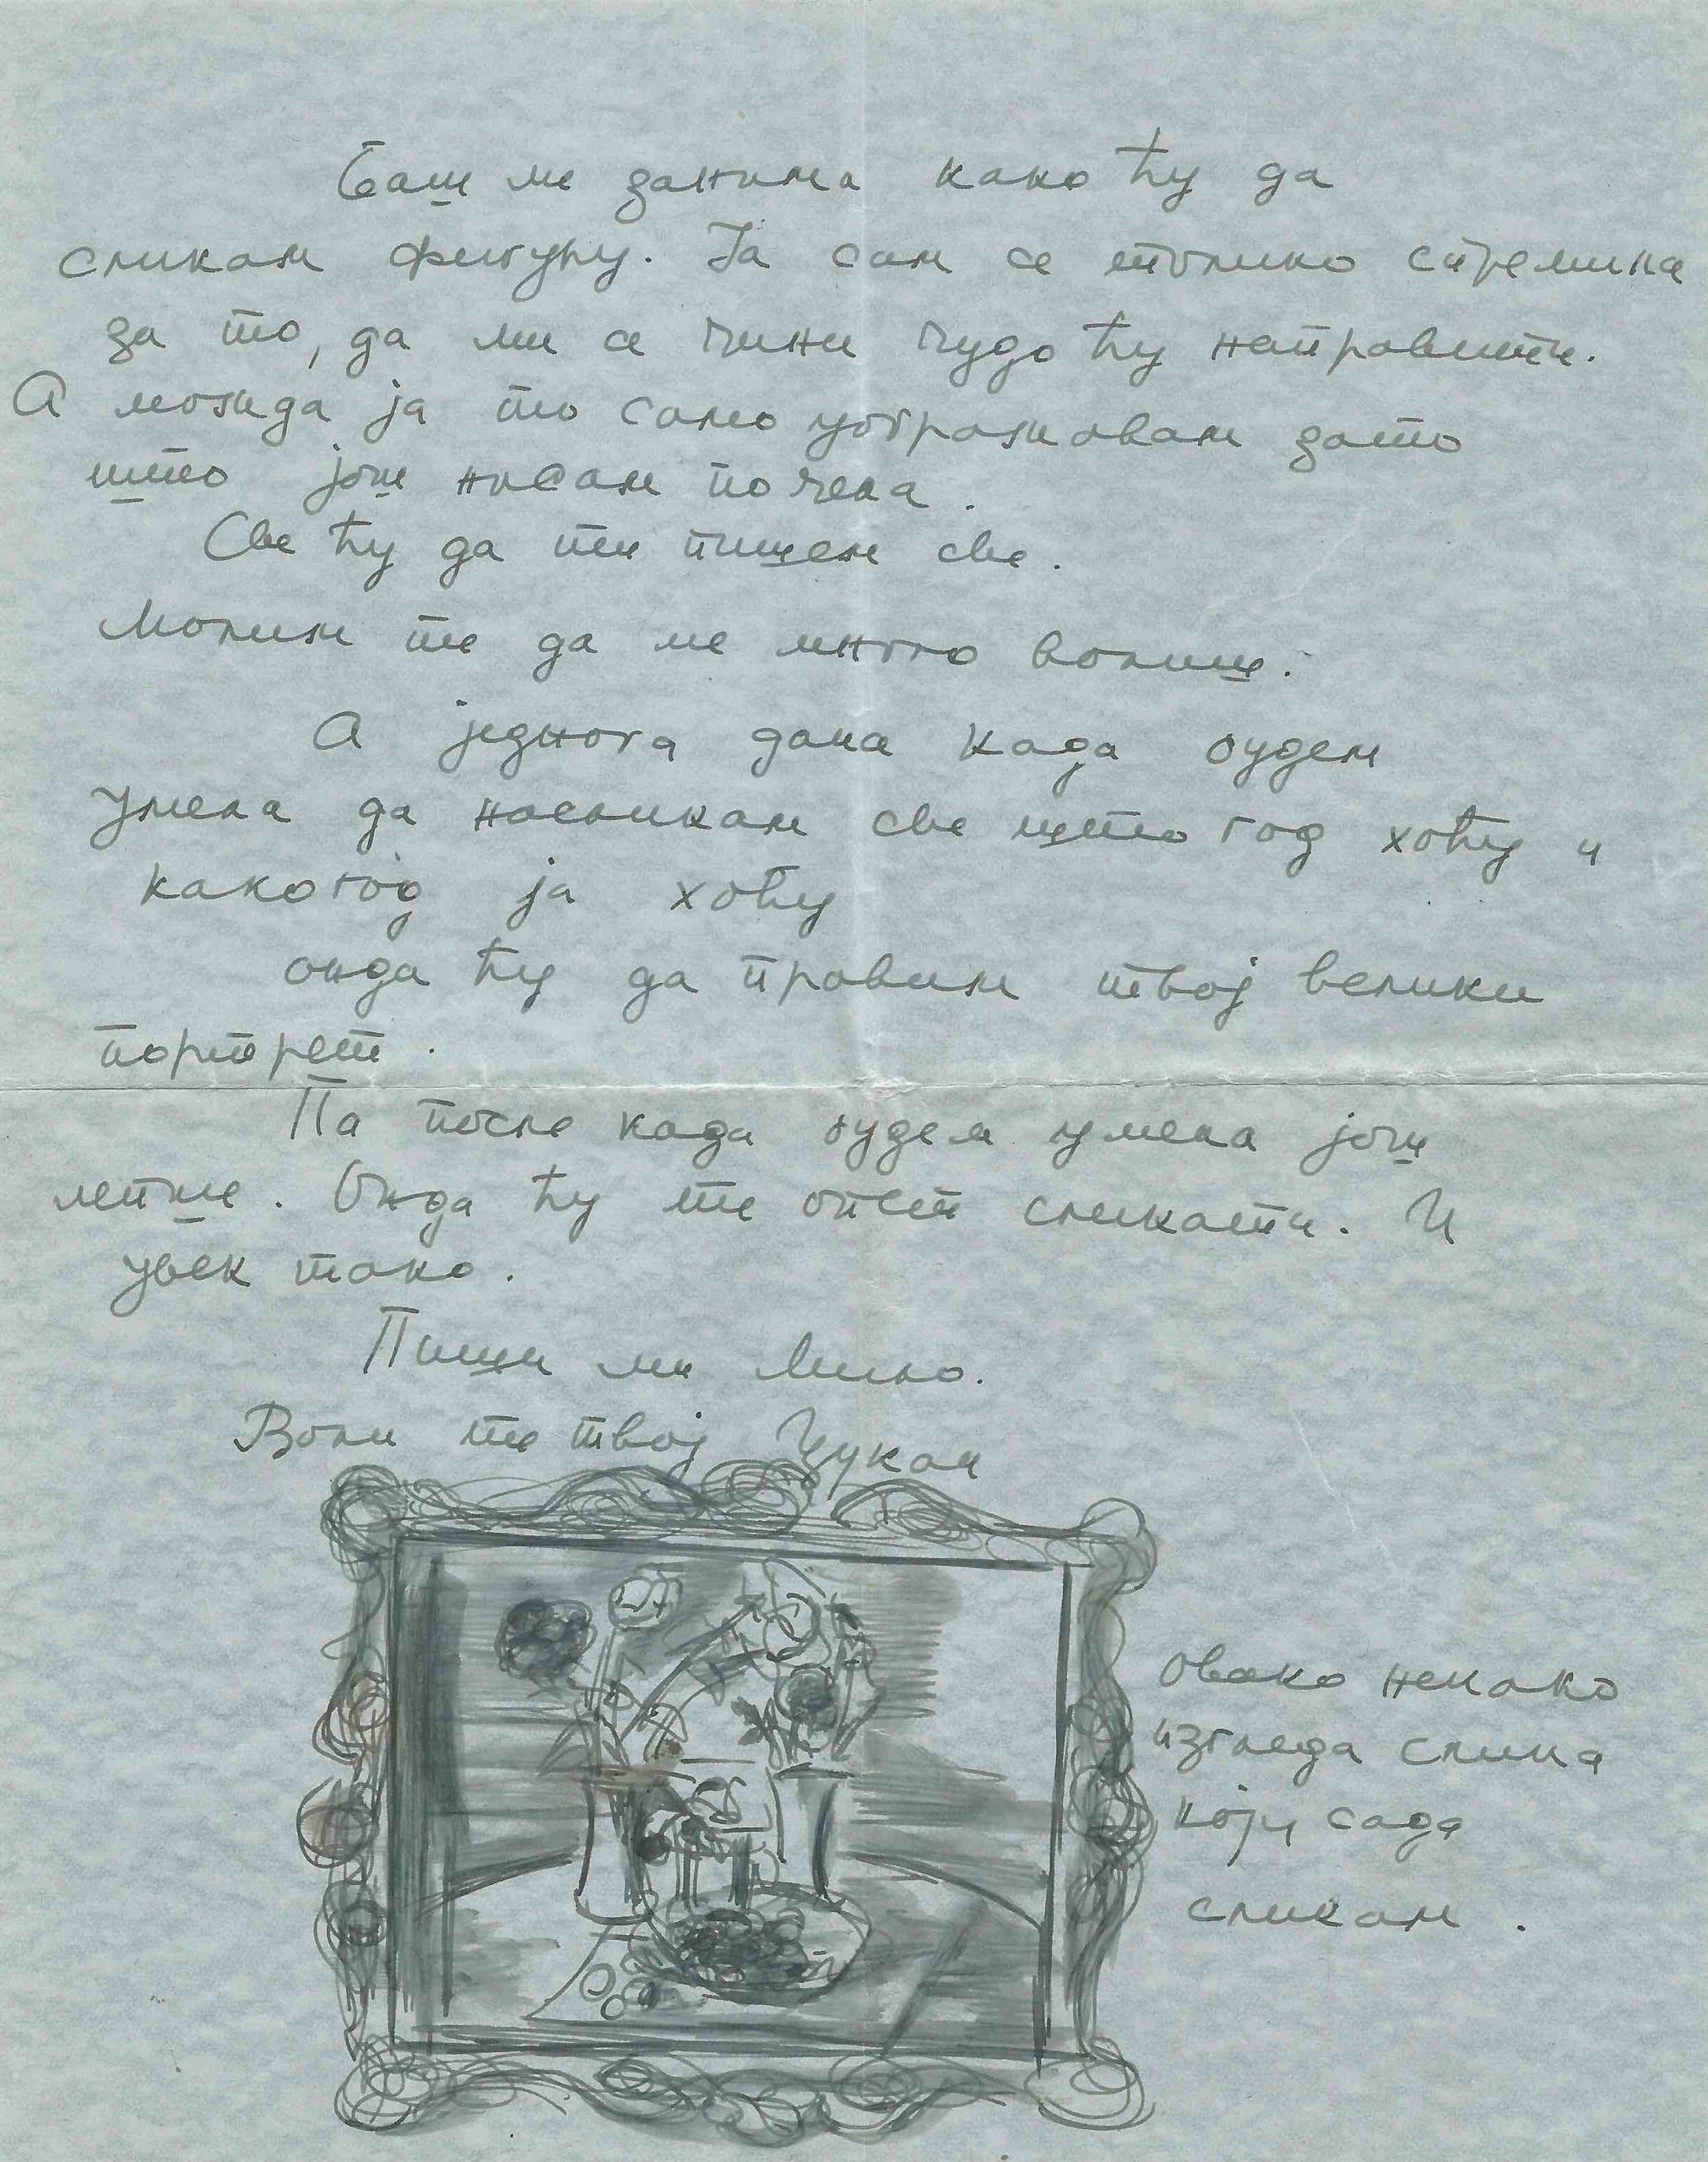 Баш ме занима како ћу да
сликам фигуру. Ја сам се толико спремила
за то, да ми се чини чудо ћу направити.
А можда ја то само уображавам зато
што још нисам почела.
Све ћу да ти пишем све.
Молим те да ме много волиш.
А једнога дана када будем
умела да насликам све што год хоћу и
како год ја хоћу
онда ћу да правим твој велики
портрет.
Па после када будем умела још
лепше. Онда ћу те опет сликати. И
увек тако.
Пиши ми Мило.
Воли те твој
овако некако
изгледа слика
коју сада
сликам.